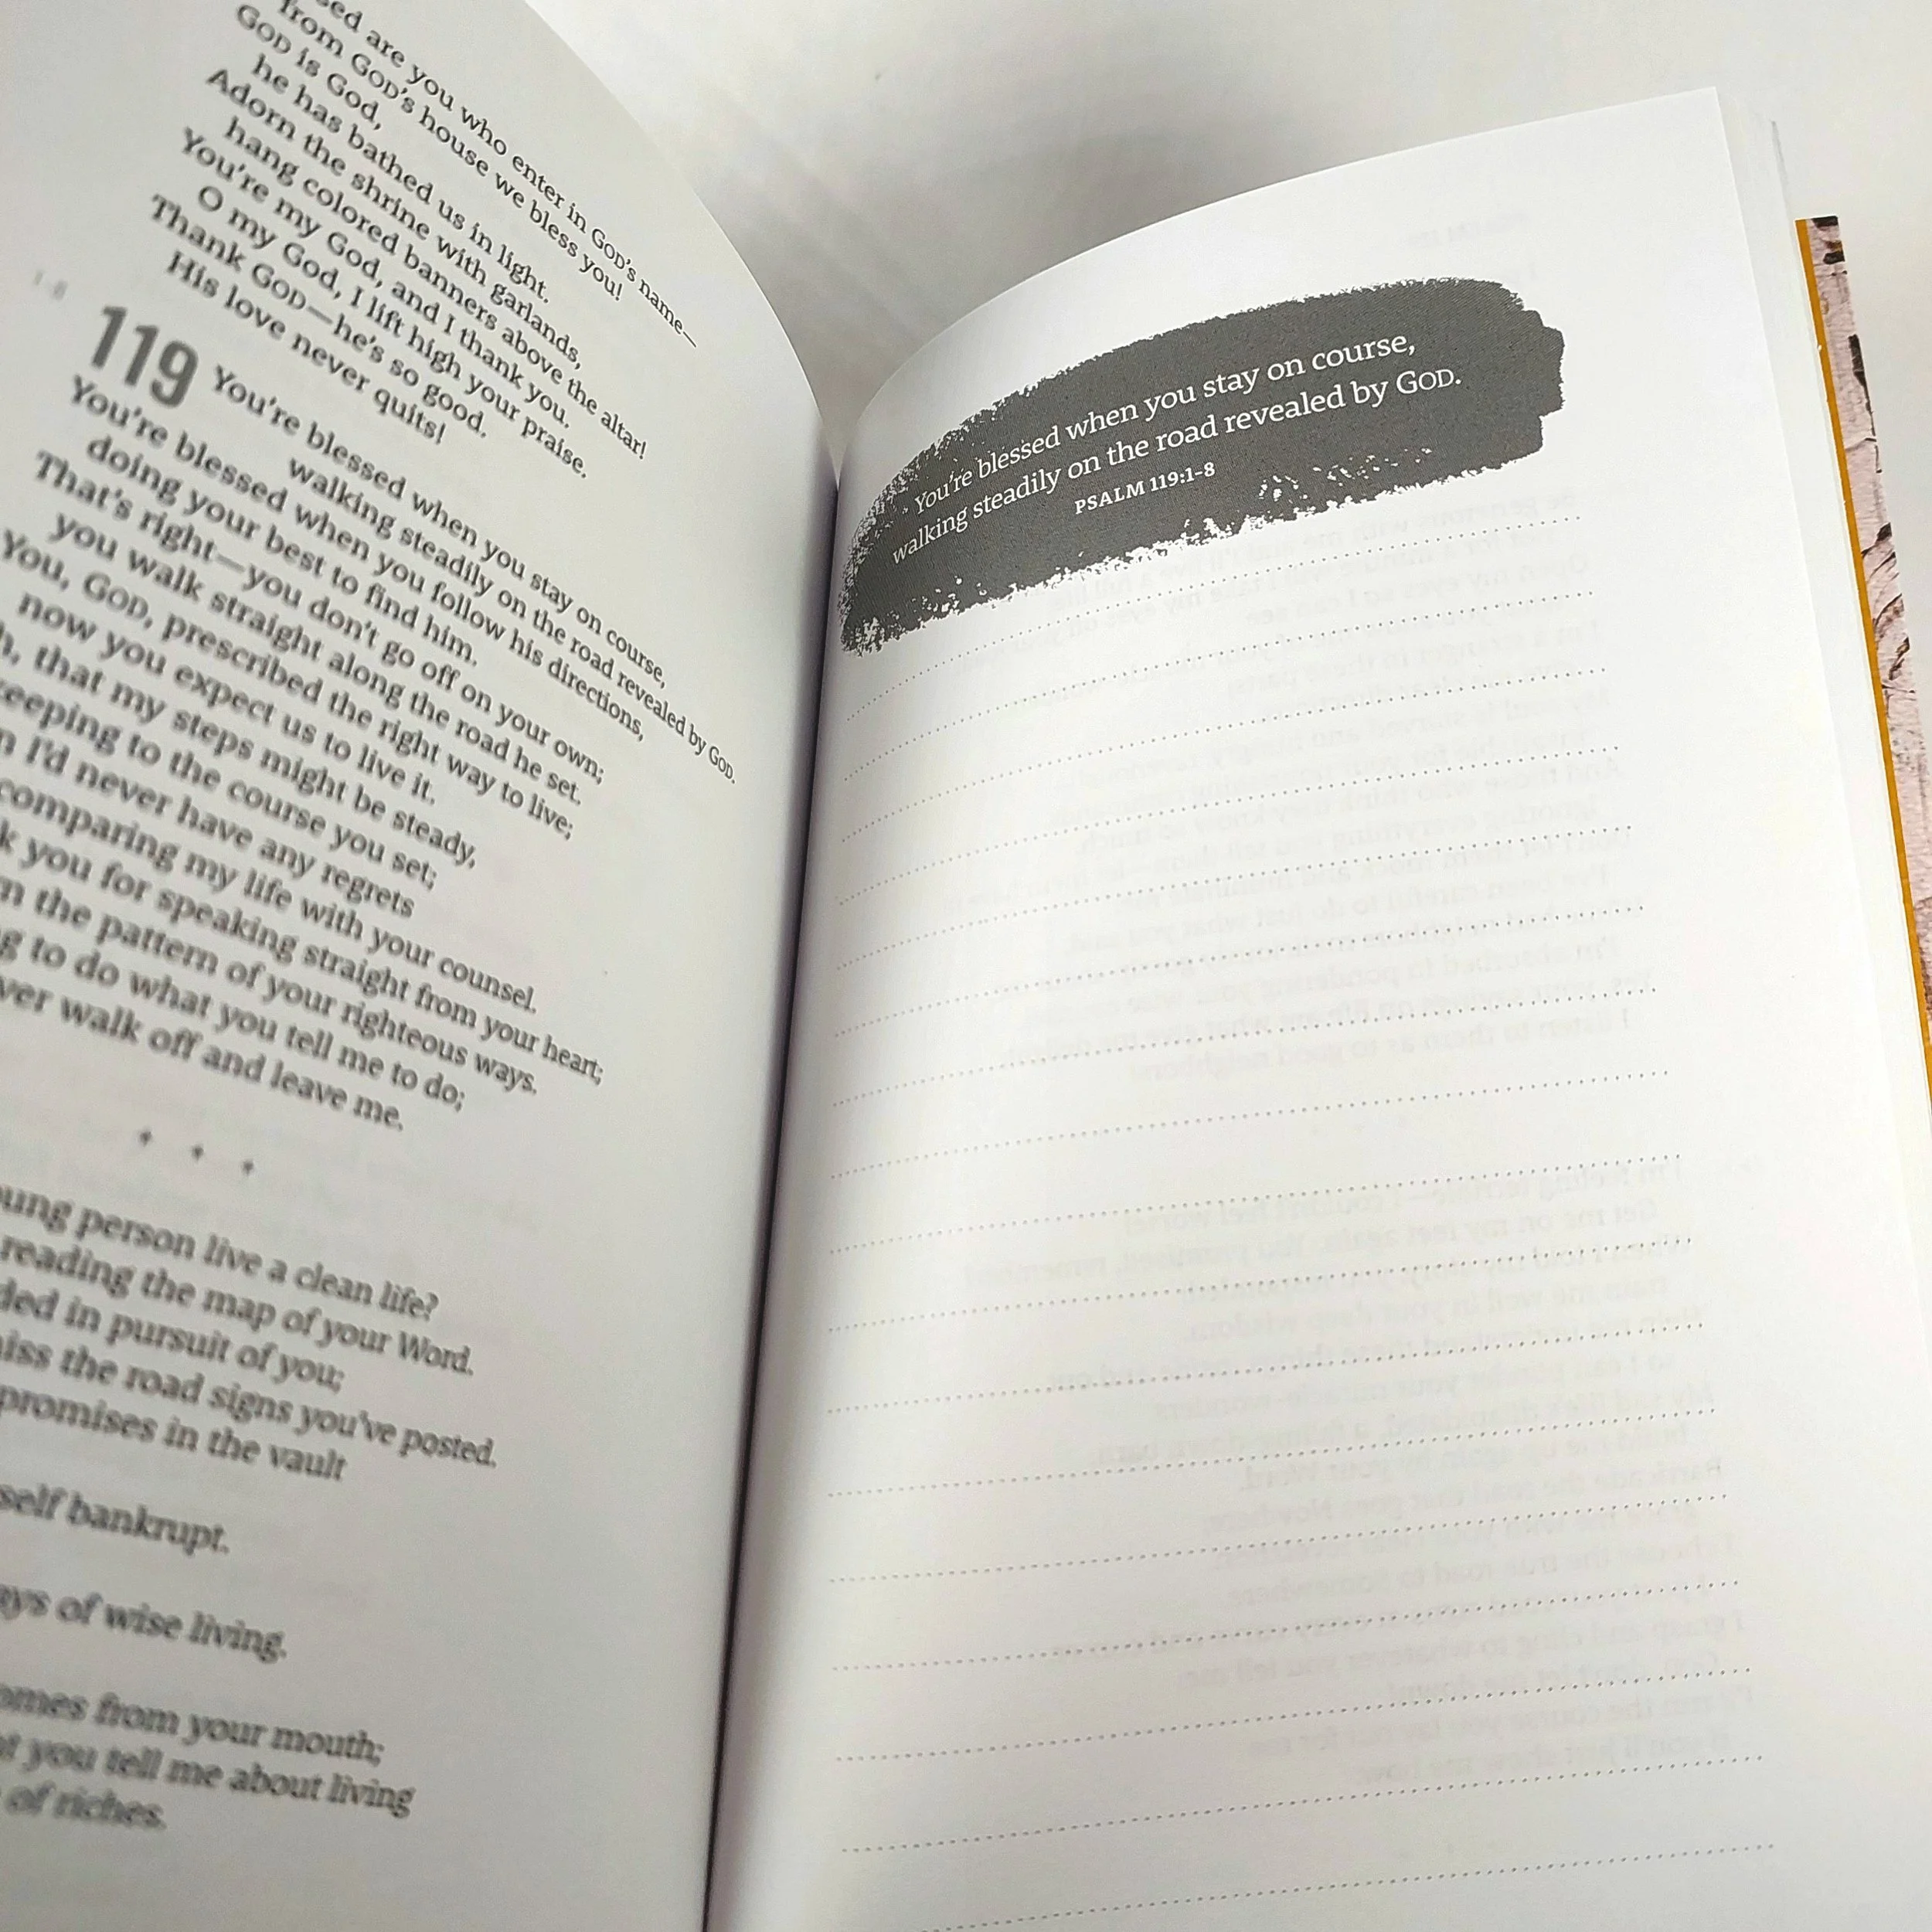 sed are you who enter in GOD's name—
from GOD's house we bless you!
GOD is God,
he has bathed us in light.
Adorn the shrine with garlands,
hang colored banners above the altar!
You're my God, and I thank you.
O my God, I lift high your praise.
Thank GOD—he's so good.
His love never quits!
1-8
119 You're blessed when you stay on course,
walking steadily on the road revealed by GOD.
You're blessed when you follow his directions,
doing your best to find him.
That's right—you don't go off on your own;
you walk straight along the road he set.
You, GOD, prescribed the right way to live;
now you expect us to live it.
h, that my steps might be steady,
keeping to the course you set;
n I'd never have any regrets
comparing my life with your counsel.
k you for speaking straight from your heart;
n the pattern of your righteous ways.
g to do what you tell me to do;
ver walk off and leave me.
oung person live a clean life?
reading the map of your Word.
ded in pursuit of you;
iss the road signs you've posted.
promises in the vault
self bankrupt.
ays of wise living.
omes from your mouth;
at you tell me about living
of riches.
You're blessed when you stay on course,
walking steadily on the road revealed by GOD.
PSALM 119:1-8